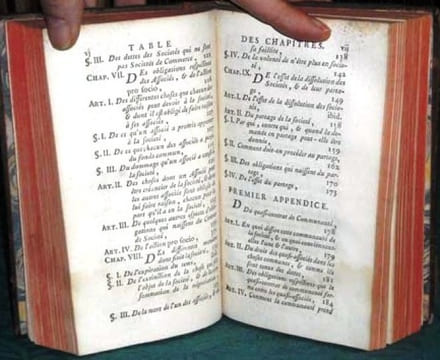 vj TABLE
§. III. Des dettes des Sociétés qui ne sont
pas Sociétés de Commerce,
CHAP. VII. Des obligations respectives
des associés, & de l'action
pro socio,
ART. I. Des différentes choses que chacun des
associés peut devoir à la société,
& dont il est obligé de faire raison
à ses associés,
§. I. De ce qu'un associé a promis apporter
à la société,
§. II. De ce que chacun des associés a
du fonds commun,
§. III. Du dommage qu'un associé a causé
la société,
ART. II. Des choses dont un Associé peut
être créancier de la société, &
les autres associés sont obligés de
lui faire raison, chacun pour
part qu'il a en la société,
ART. III. De quelques autres
qui naissent du
de Société,
ART. IV. De l'action pro socio,
CHAP. VIII. Des différentes manieres
dont finit la société,
§. I. De l'expiration du tems,
§. II. De l'extinction de la chose
l'objet de la société, & de la
sommation de la négociation
§. III. De la mort de l'un des associés, &
DES CHAPITRES. vij
sa faillite,
§. IV. De la volonté de n'être plus en socié-
té, 142
CHAP. IX. De l'effet de la dissolution des
Sociétés, & de leur parta-
ge, 149
ART. I. De l'effet de la dissolution des Socié-
tés, ibid.
ART. II. Du partage de la société, 158
§. I. Par qui, contre qui, & quand la de-
mande en partage peut-elle être
donnée, 159
§. II. Comment doit-on procéder au partage,
162
§. III. Des obligations qui naissent du par-
tage, 170
§. IV. De l'effet du partage, 173
PREMIER APPENDICE.
Du quasi-contrat de Communauté,
ART. I. En quoi differe cette communauté de
la société, & en quoi conviennent-
elles l'une & l'autre,
ART. II. Du droit de quasi-associés dans les
choses communes, & comme ils
sont tenus des dettes, 181
ART. III. Des obligations respectives que le
quasi-contrat de communauté for-
me entre les quasi-associés, 184
ART. IV. Comment la communauté prend